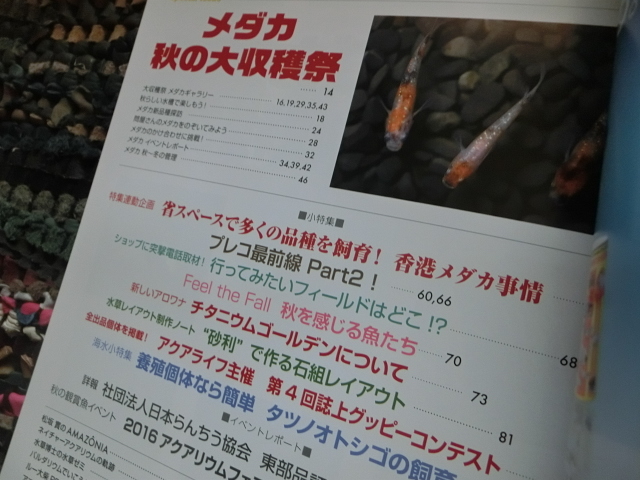 メダカ
秋の大収穫祭
……14
大収穫祭 メダカギャラリー ……16,19,29,35,43
秋らしい水槽で楽しもう！ ……18
メダカ新品種探訪 ……24
問屋さんのメダカをのぞいてみよう ……28
メダカのかけ合わせに挑戦！ ……32
メダカ イベントレポート ……34,39,42
メダカ 秋〜冬の管理 ……46
■小特集■
特集連動企画 省スペースで多くの品種を飼育！ 香港メダカ事情
プレコ最前線 Part2！ ……60,66
ショップに突撃電話取材！ 行ってみたいフィールドはどこ!? ……68
Feel the Fall 秋を感じる魚たち ……70
新しいアロワナ チタニウムゴールデンについて ……73
水草レイアウト制作ノート “砂利”で作る石組レイアウト ……81
全出品個体を掲載！ アクアライフ主催 第4回誌上グッピーコンテスト
海水小特集 養殖個体なら簡単 タツノオトシゴの飼育
■イベントレポート■
詳報 社団法人日本らんちう協会 東部品
秋の観賞魚イベント 2016 アクアリウムフェ
松坂 實のAMAZÔNIA
ネイチャーアクアリウムの軌跡
水草博士の水草ゼミ